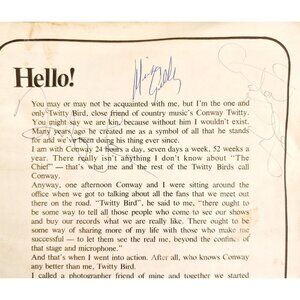 Hello!
You may or may not be acquainted with me, but I'm the one and
only Twitty Bird, close friend of country music's Conway Twitty.
You might say we are kin, because without him I wouldn't exist.
Many years ago he created me as a symbol of all that he stands
for and we've been doing his thing ever since.
I am with Conway 24 hours a day, seven days a week, 52 weeks
a year. There really isn't anything I don't know about "The
Chief" — that's what me and the rest of the Twitty Birds call
Conway.
Anyway, one afternoon Conway and I were sitting around the
office when we got to talking about all the fans that we meet out
there on the road. "Twitty Bird", he said to me, "there ought to
be some way to tell all those people who come to see our shows
and buy our records what we are really like. There ought to be
some way of sharing more of my life with those who make me
successful — to let them see the real me, beyond the confines of
that stage and microphone."
And that's when I went into action. After all, who knows Conway
any better than me, Twitty Bird.
I called a photographer friend of mine and together we started